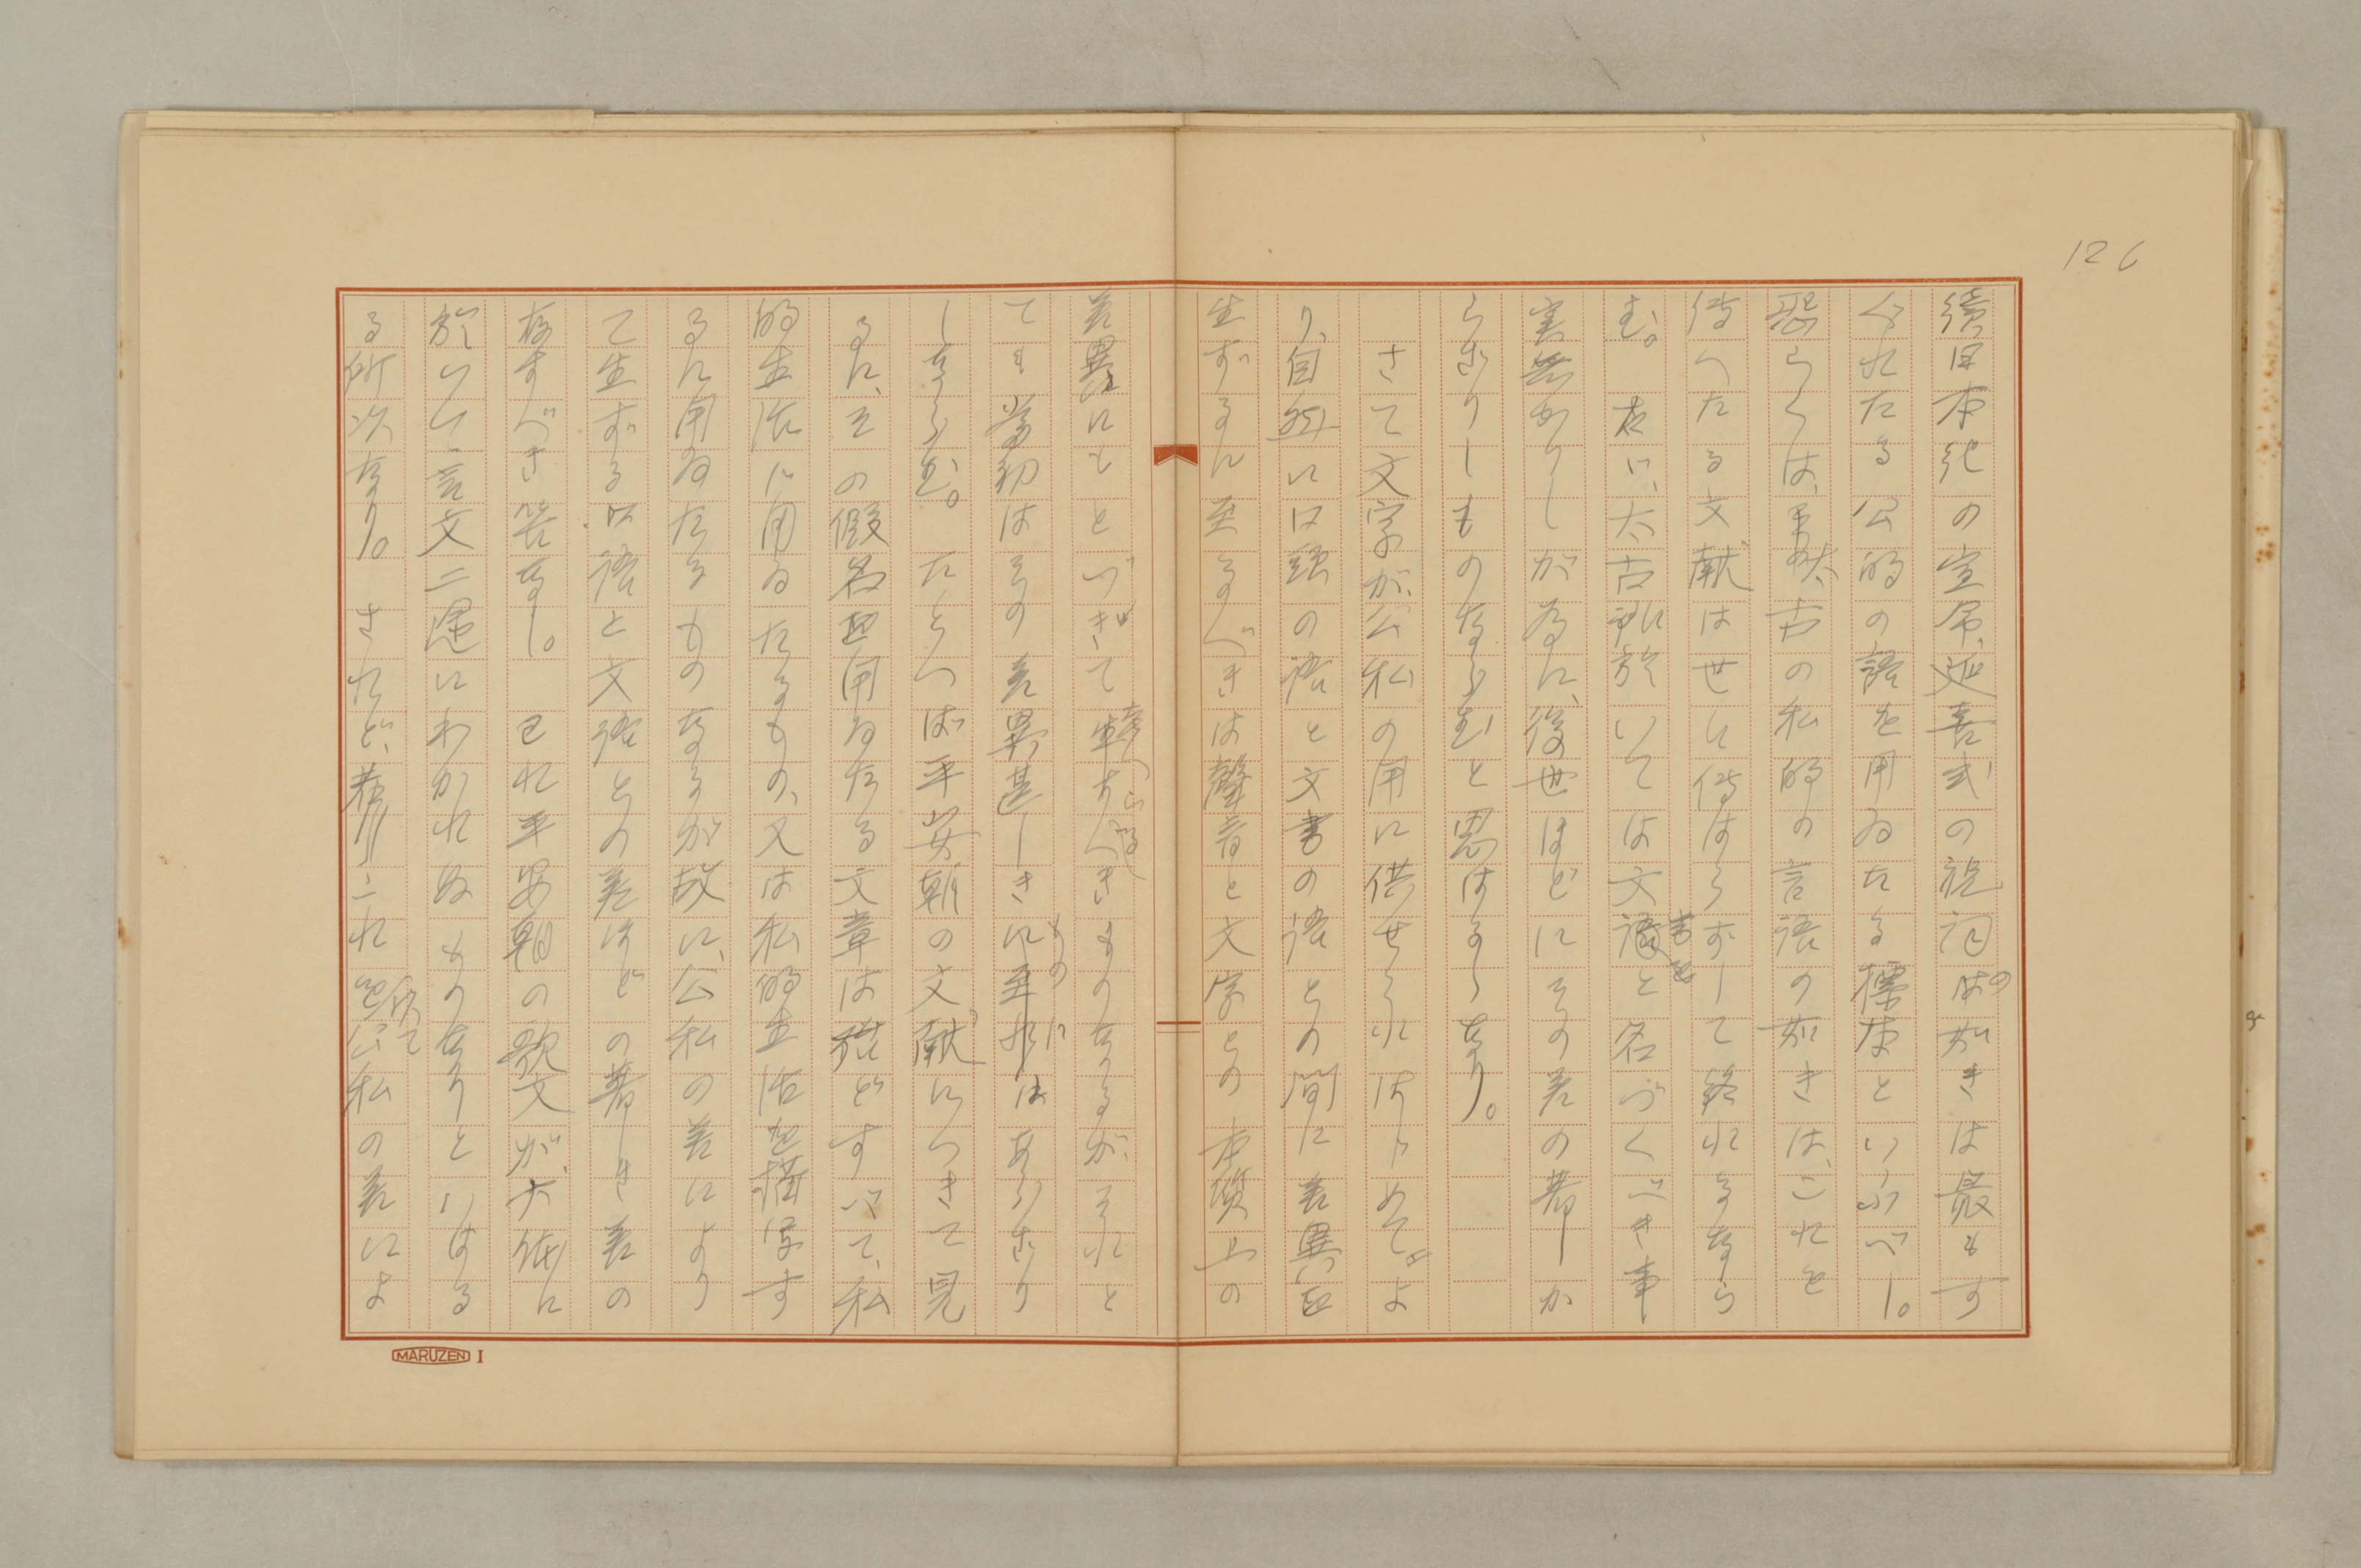 126
續日本紀の宣命、延喜式の祝詞の如きは最もす
ぐれたる公的の語を用ゐたる標本といふべし。
恐らくは、太古の私的の言語の如きは、これを
傳へたる文献は世に傳はらずして終れるなら
む。 太古に於いては文語と名づくべき事
実無かりしが為に、後世ほどにその差の著しか
らざりしものならむと思はるゝなり。
さて文字が、公私の用に供せられはじめてよ
り、自然に口頭の語と文書の語との間に差異を
生ずるに至るべきは聲音と文字との本質上の
差異にもとづきて
ても當初はその差異甚しきに至れ
るものにはあらざり
しならむ。 たとへば平安朝の文献につきて見
るに、その假名を用ゐたる文章は殆どすべて、私
的生活に用ゐたるもの、又は私的生活を描寫す
るに用ゐたるものなるが故に、公私の差により
て生ずる口語と文語との差はどの著しき差の
存すべき筈なし。 されば平安朝の歌文が、大体に
於いて、言文二途にわかれぬものなりといはる
る所以なり。 されど、若しこれを以て公私の差によ
MARUZEN I